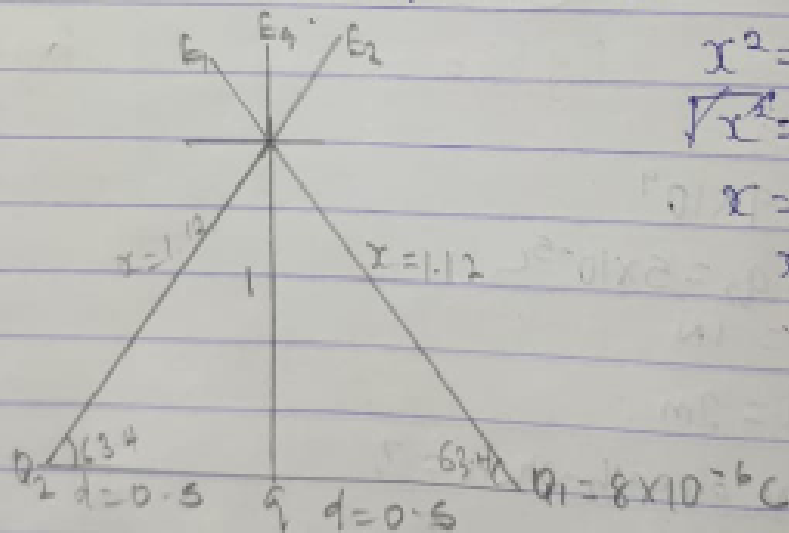 E₁ E₉ E₂
x² =
√x² =
x =
x = 1.12
x = 1.12
1
63.4
63.4
Q₂ d = 0.5 q d = 0.5 Q₁ = 8 × 10⁻⁶ C